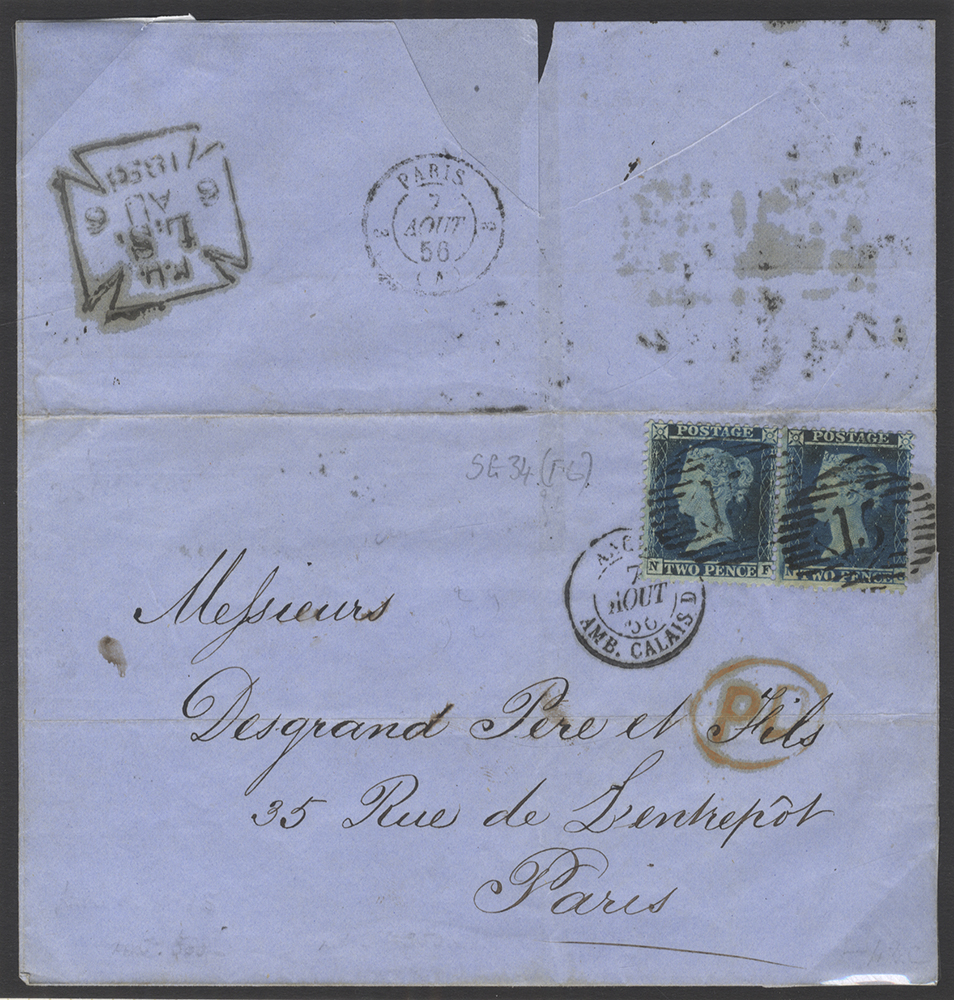 PARIS
7
AOUT
56
(A)
L.S.
6 6
SG 34 (FG)
POSTAGE
TWO PENCE
N F
POSTAGE
TWO PENCE
7
AOUT
AMB. CALAIS D
Messieurs
PD
Desgrand Père et Fils
35 Rue de L'entrepôt
Paris